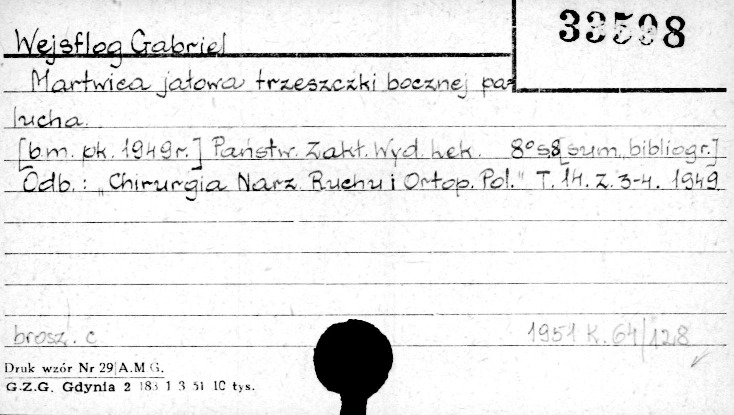 33598
Wejsflog Gabriel
Martwica jałowa trzeszczki bocznej pa-
lucha.
[b.m. pk. 1949r.] Państw. Zakł. Wyd. Lek. 8° s8 [sum., bibliogr.]
Odb.: „Chirurgia Narz. Ruchu i Ortop. Pol." T. 14. Z. 3-4. 1949
brosz. c 1951 K. 64/128
Druk wzór Nr 29 A.M G.
G.Z.G. Gdynia 2 183 1 3 51 10 tys.